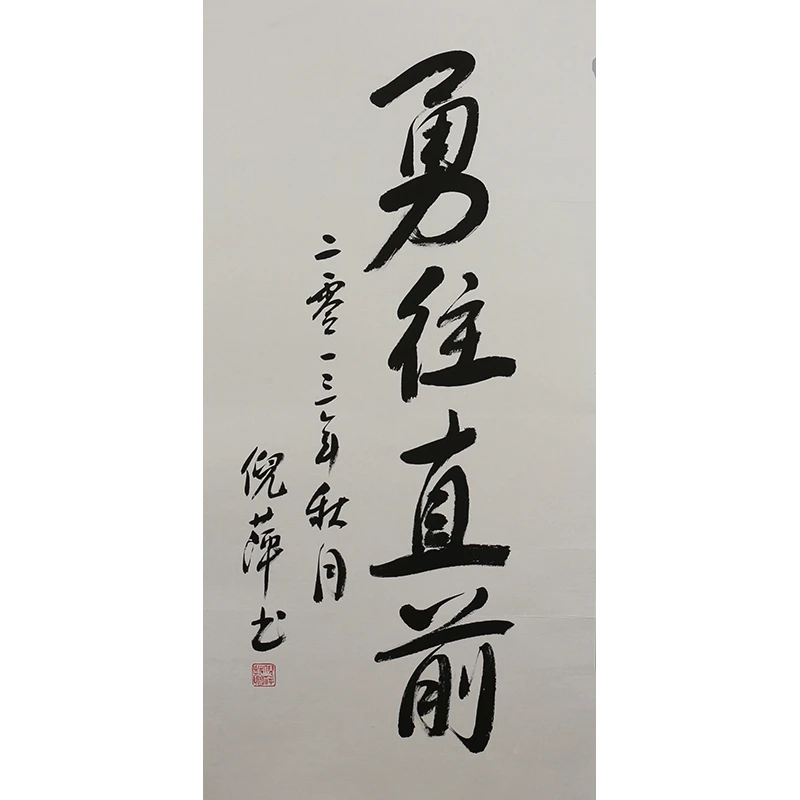 勇往直前
二零一三年秋月
倪萍书